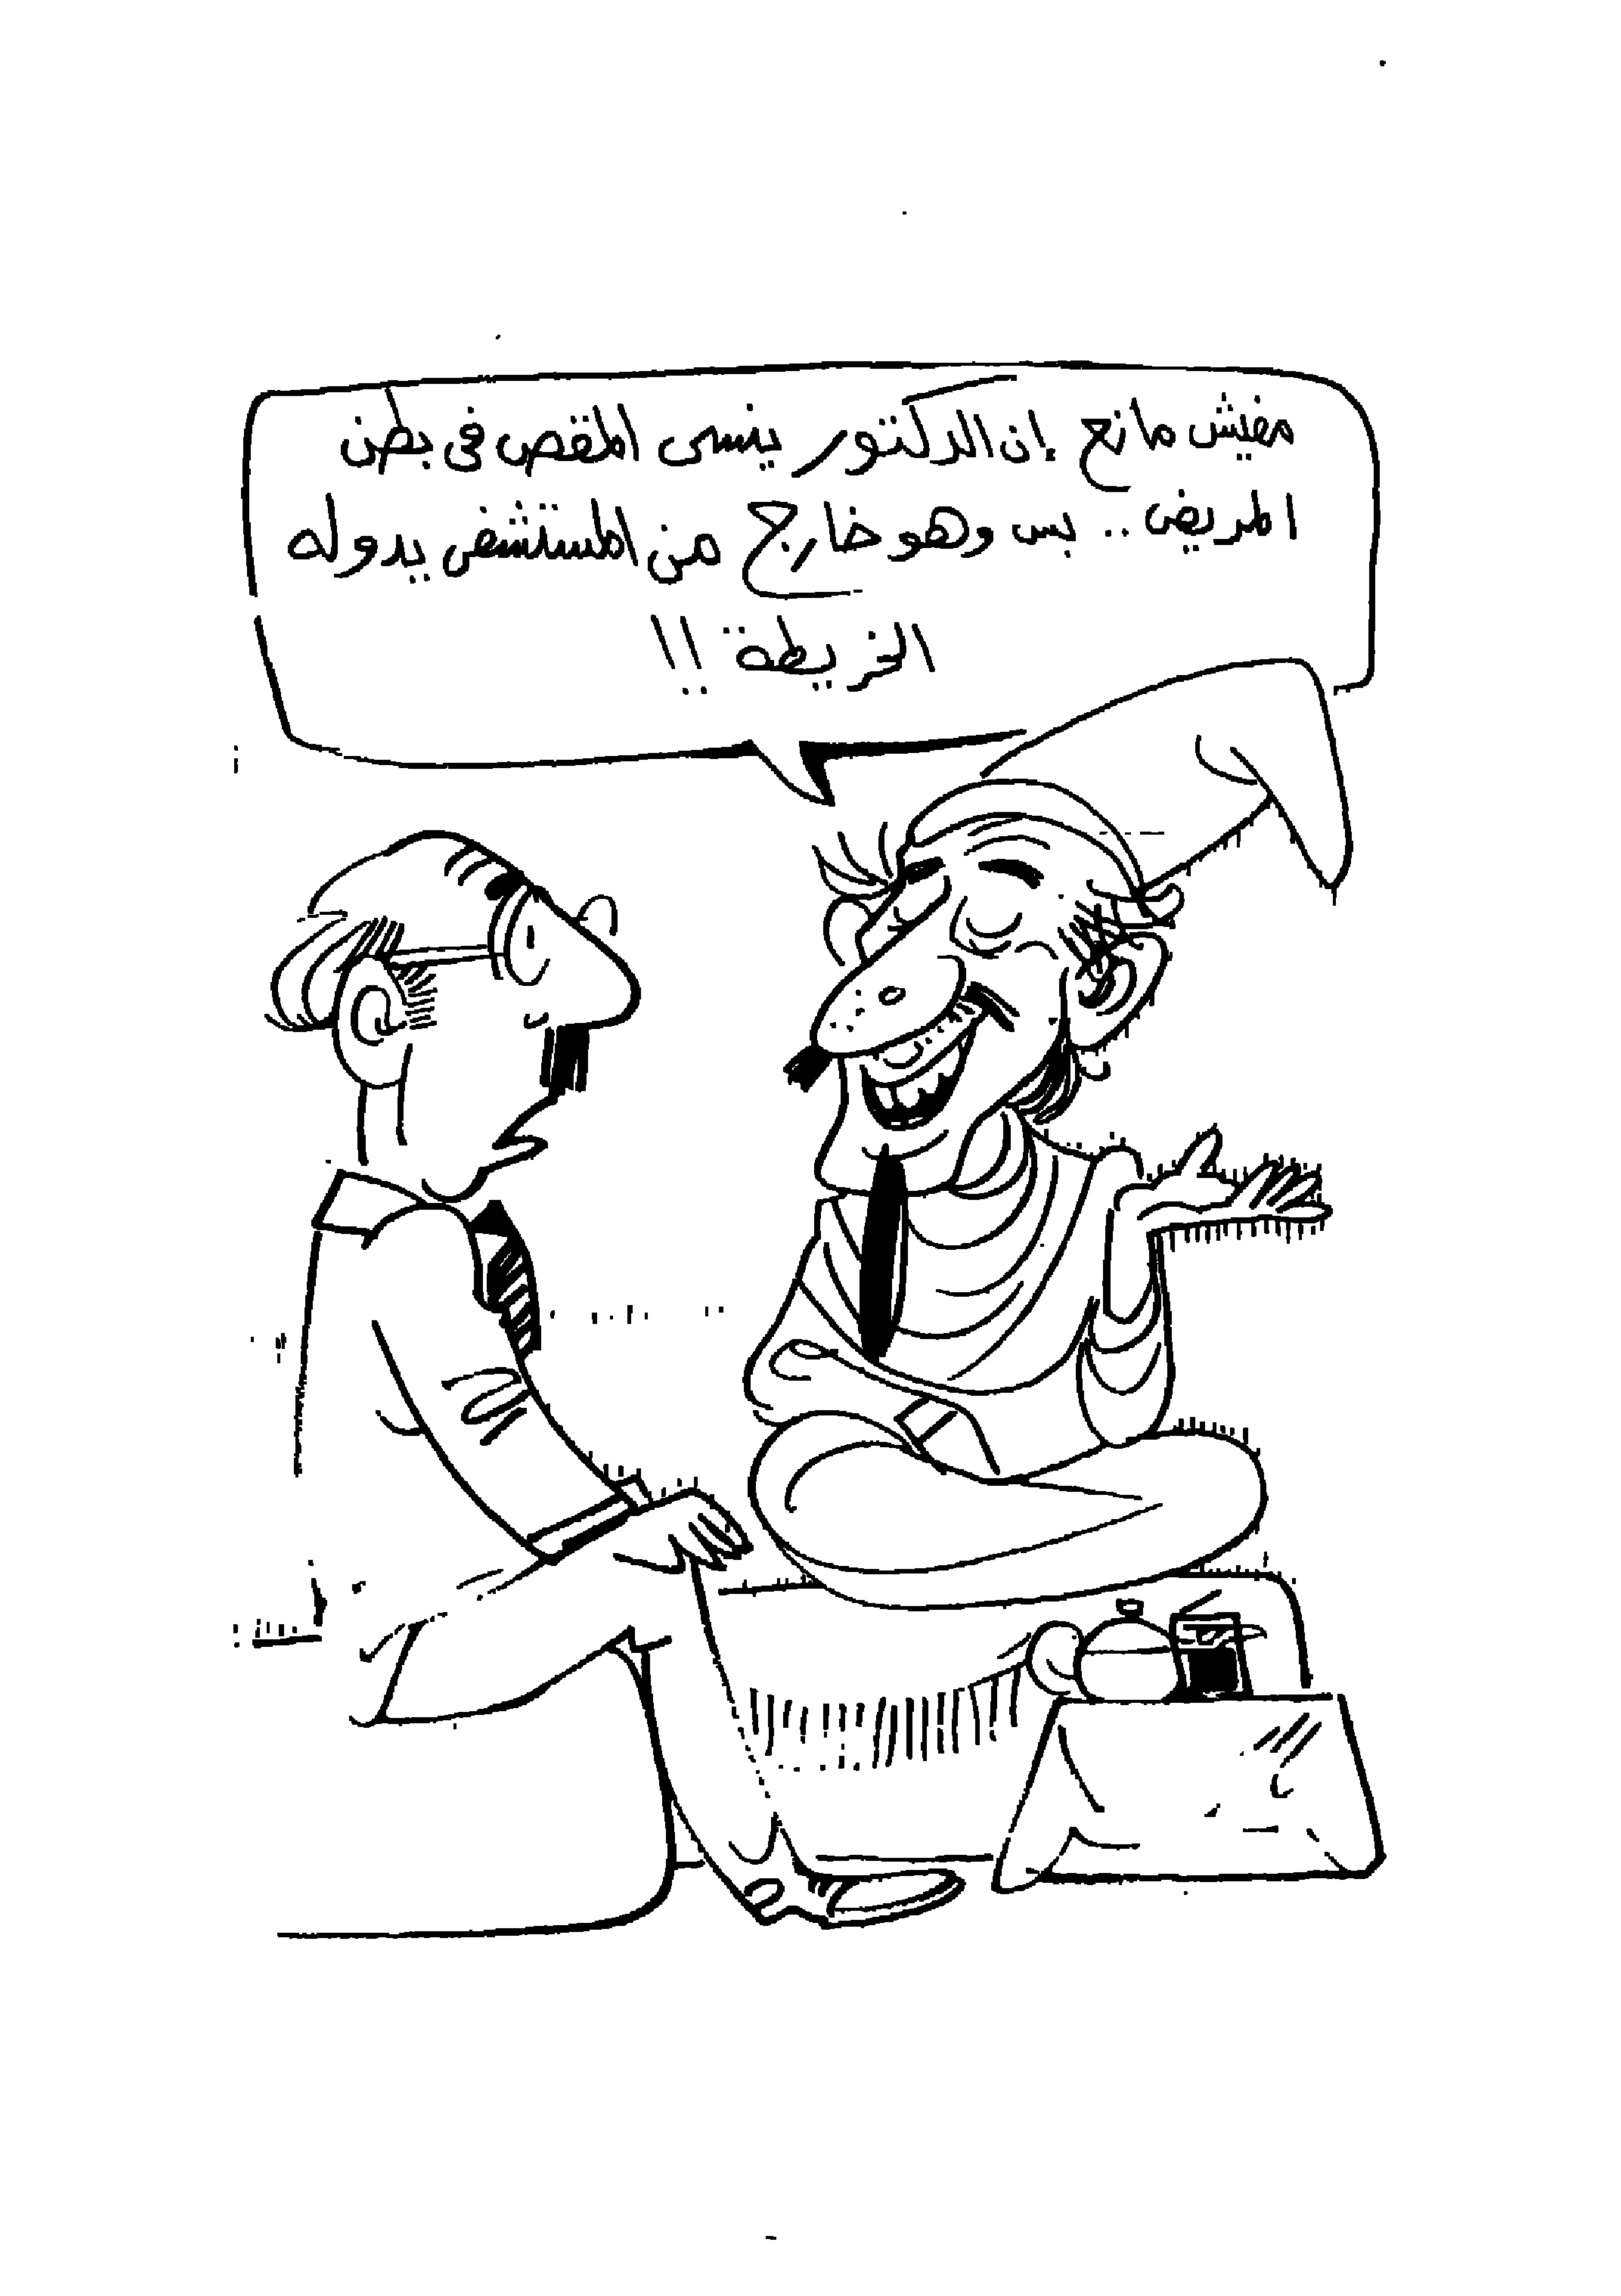 مفيش مانع إن الدكتور ينسى المقص فى بطن
المريض .. بس وهو خارج من المستشفى يدوله
الخريطة !!